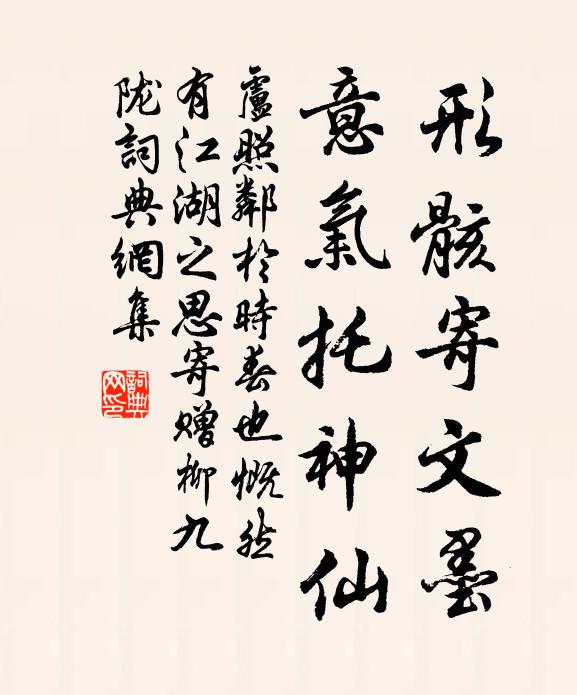 形骸寄文墨
意氣托神仙
盧照鄰於時春也慨然
有江湖之思寄贈柳九
陇詞典網集
詞典
网印